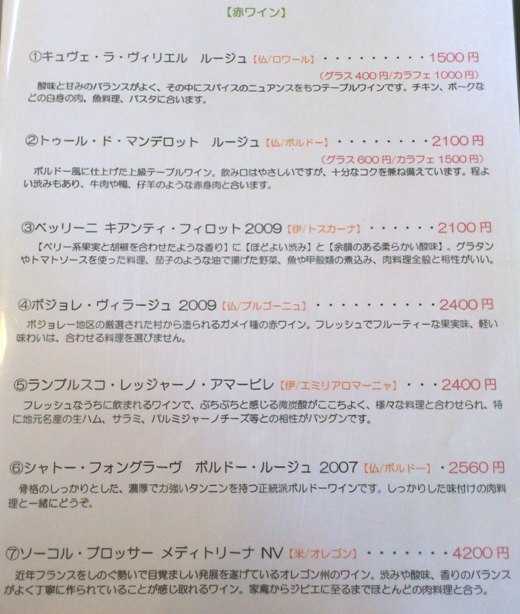 【赤ワイン】
①キュヴェ・ラ・ヴィリエル ルージュ【仏/ロワール】・・・・・・・・・1500円
(グラス400円/カラフェ1000円)
酸味と甘みのバランスがよく、その中にスパイスのニュアンスをもつテーブルワインです。チキン、ポークな
どの白身の肉、魚料理、パスタに合います。
②トゥール・ド・マンデロット ルージュ【仏/ボルドー】・・・・・・・・2100円
(グラス600円/カラフェ1500円)
ボルドー風に仕上げた上級テーブルワイン。飲み口はやさしいですが、十分なコクを兼ね備えています。程よ
い渋みもあり、牛肉や鴨、仔羊のような赤身肉と合います。
③ベッリーニ キアンティ・フィロット2009【伊/トスカーナ】・・・・・・2100円
【ベリー系果実と胡椒を合わせたような香り】に【ほどよい渋み】と【余韻のある柔らかい酸味】。グラタン
やトマトソースを使った料理、茄子のような油で揚げた野菜、魚や甲殻類の煮込み、肉料理全般と相性がいい。
④ボジョレ・ヴィラージュ 2009【仏/ブルゴーニュ】・・・・・・・・・・2400円
ボジョレー地区の厳選された村から造られるガメイ種の赤ワイン。フレッシュでフルーティーな果実味、軽い
味わいは、合わせる料理を選びません。
⑤ランブルスコ・レッジャーノ・アマービレ【伊/エミリアロマーニャ】・・・2400円
フレッシュなうちに飲まれるワインで、ぷちぷちと感じる微炭酸がここちよく、様々な料理と合わせられ、特
に地元名産の生ハム、サラミ、パルミジャーノチーズ等との相性がバツグンです。
⑥シャトー・フォングラーヴ ボルドー・ルージュ 2007【仏/ボルドー】・2560円
骨格のしっかりとした、濃厚で力強いタンニンを持つ正統派ボルドーワインです。しっかりした味付けの肉料
理と一緒にどうぞ。
⑦ソーコル・ブロッサー メディトリーナ NV【米/オレゴン】・・・・・・・4200円
近年フランスをしのぐ勢いで目覚ましい発展を遂げているオレゴン州のワイン。渋みや酸味、香りのバランス
がよく丁寧に作られていることが感じ取れるワイン。家禽からジビエに至るまでほとんどの肉料理と合う。